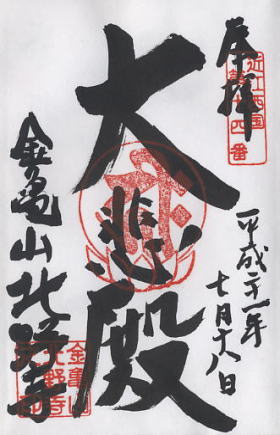 奉拝
近江西国
第十四番
平成廿一年
七月十八日
大悲殿
金亀山北野寺
金亀山
北野寺